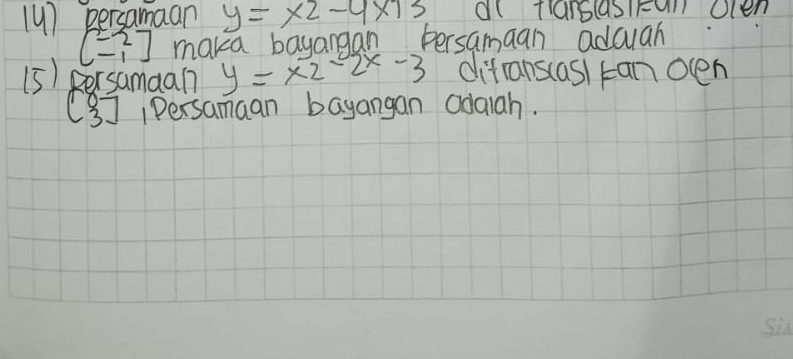 14) persamaan y = x2 - 4x+3 di translasikan oleh
[-2 -1] maka bayangan persamaan adalah
15) persamaan y = x2 - 2x - 3 ditranslasikan oleh
[0 3], Persamaan bayangan adalah.
Sis